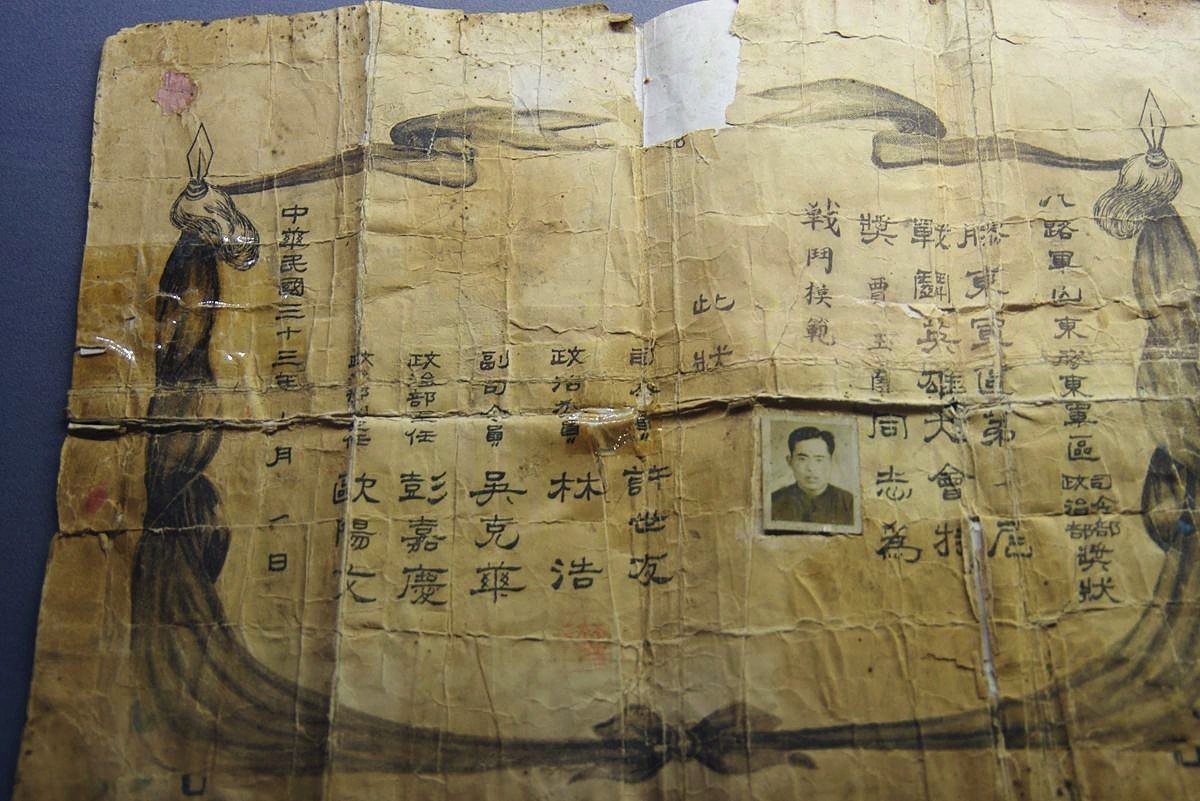 八路軍山東膠東軍區司令部政治部獎狀
膠東軍區第一屆
戰鬪英雄大會特
獎賈玉同志為
戰鬥模範
此狀
司令員許世友
政治委員林浩
副司令員吳克華
政治部主任彭嘉慶
政治部副主任歐陽文
中華民國三十三年月一日